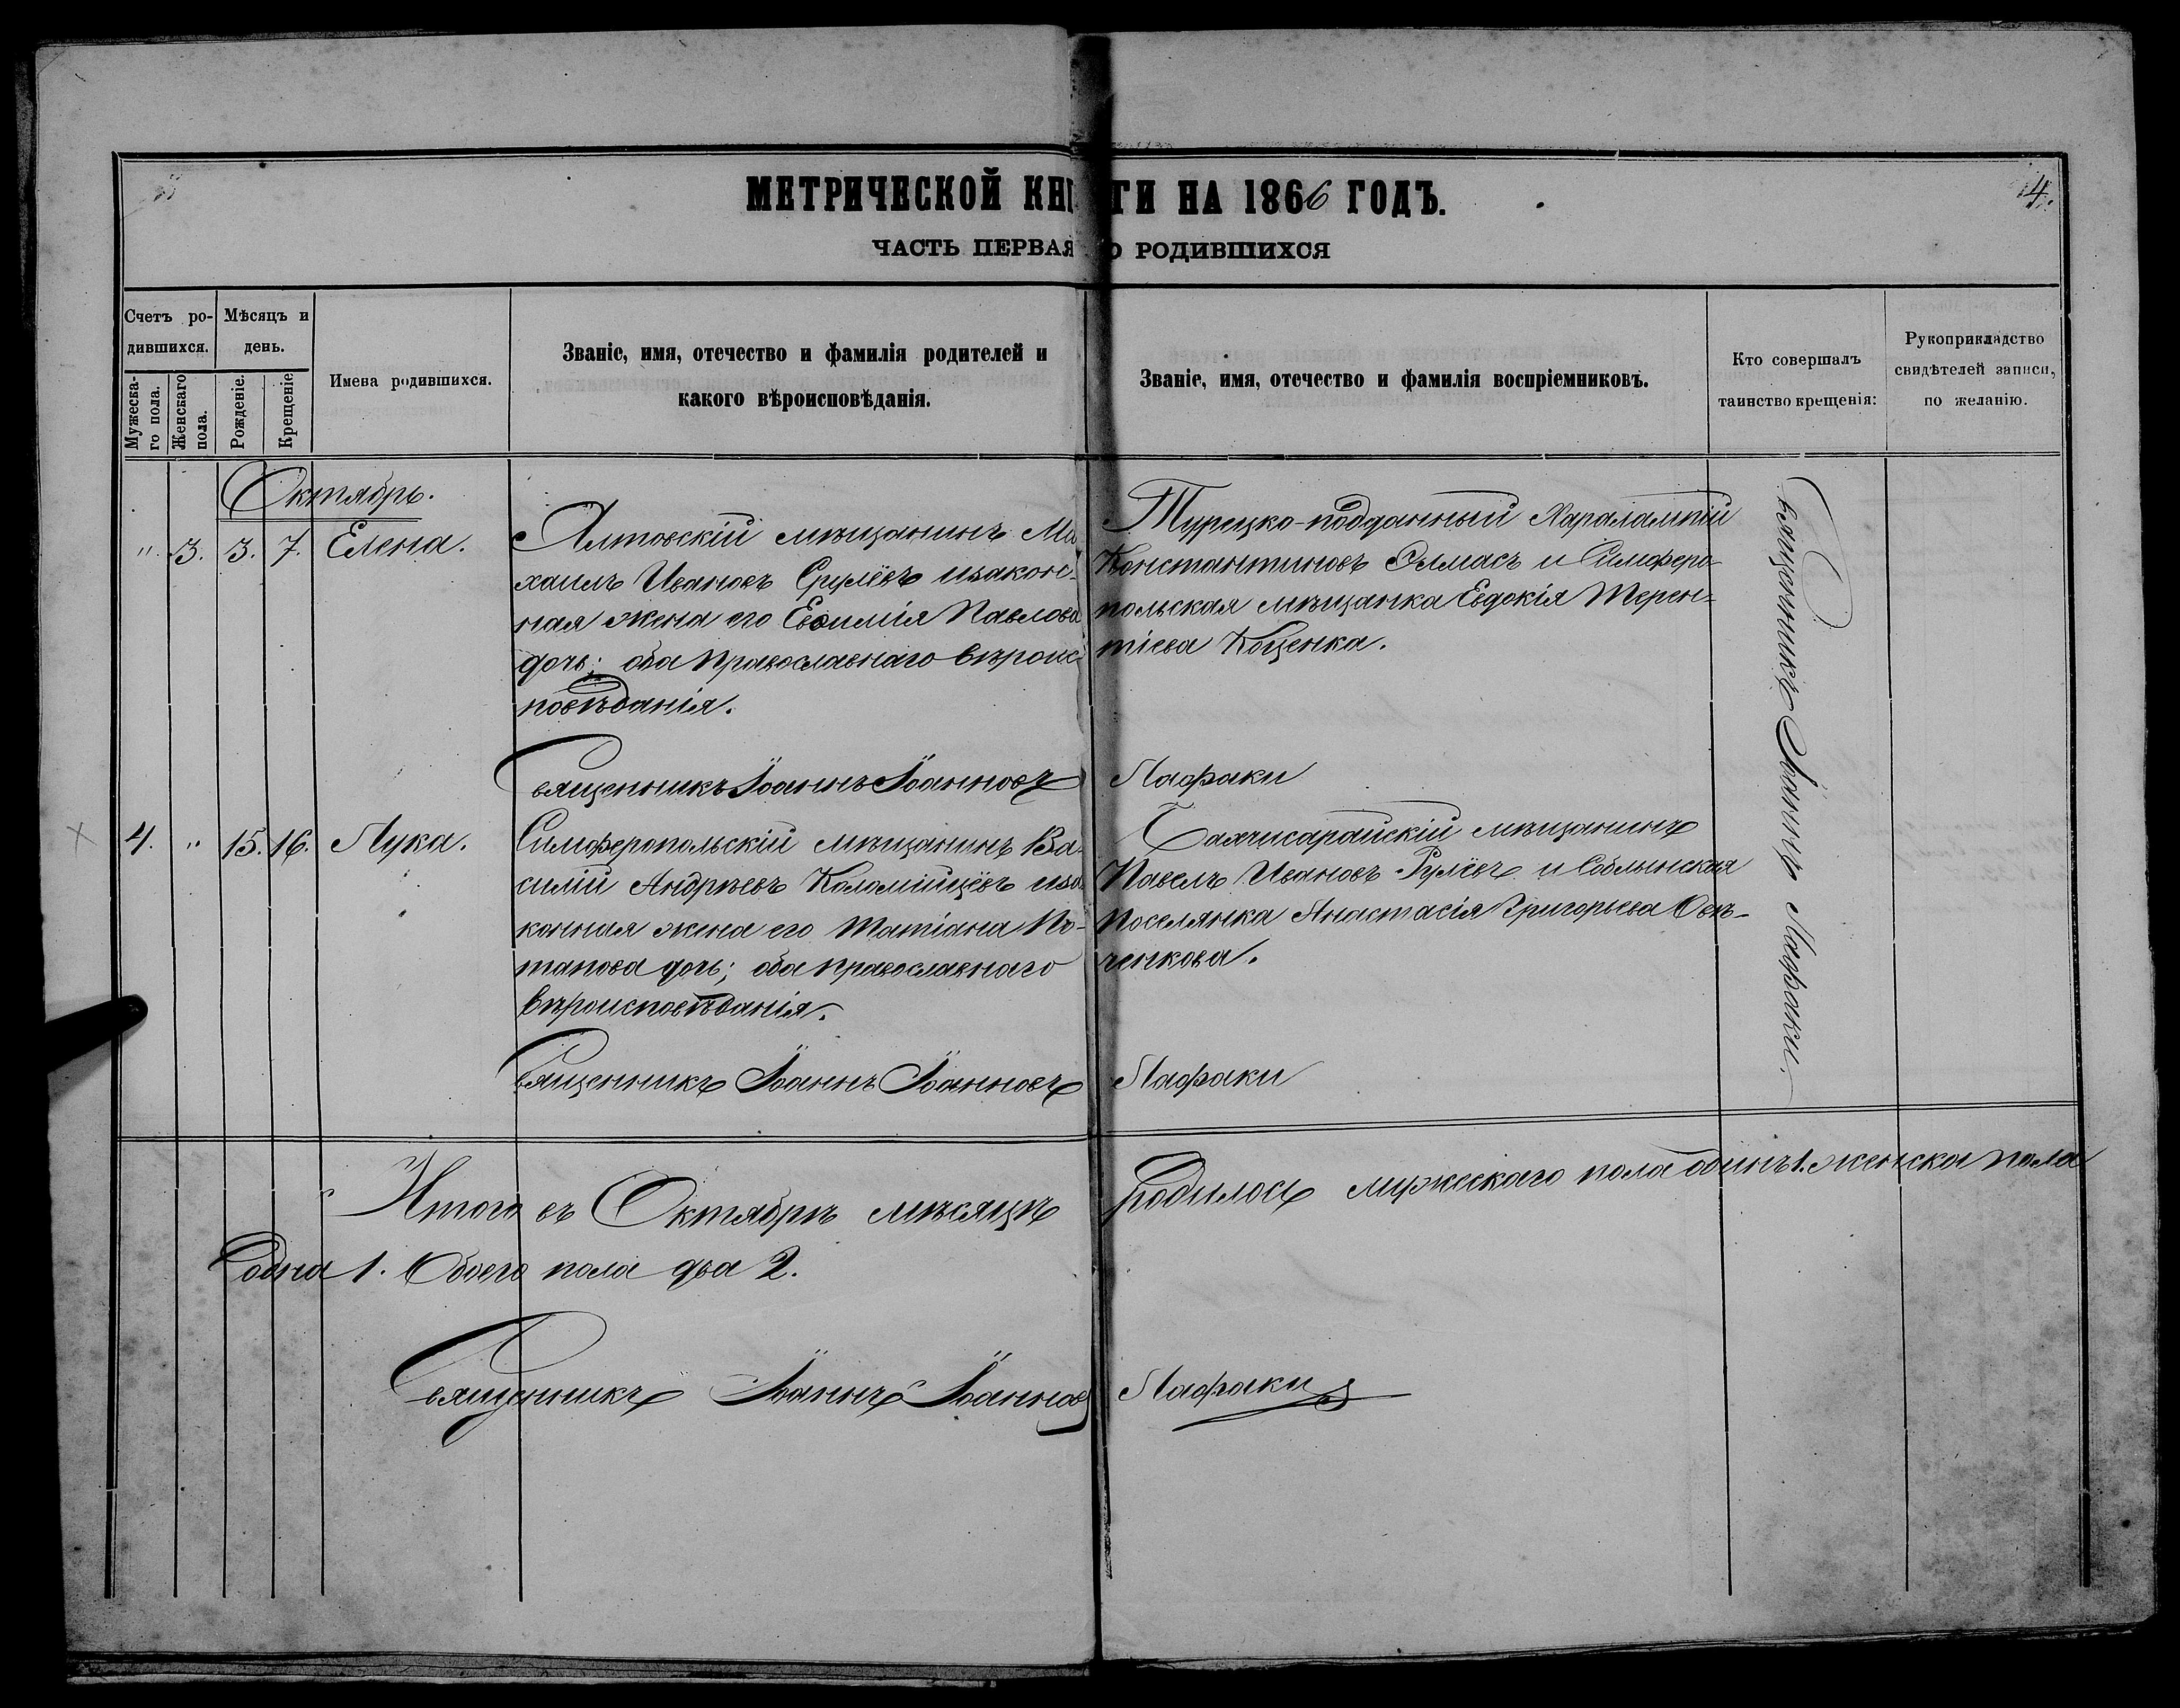 4.
МЕТРИЧЕСКОЙ КНИГИ НА 1866 ГОДЪ.
ЧАСТЬ ПЕРВАЯ О РОДИВШИХСЯ
Счетъ ро-
дившихся.
Мужеска-
го пола.
Женскаго
пола.
Мѣсяцъ и
день.
Рожденіе.
Крещеніе
Имена родившихся.
Званіе, имя, отечество и фамилія родителей и
какого вѣроисповѣданія.
Званіе, имя, отечество и фамилія воспріемниковъ.
Кто совершалъ
таинство крещенія:
Рукоприкладство
свидѣтелей записи,
по желанію.
Октябрь.
". 3. 3. 7. Елена.
Ялтовскій мѣщанинъ Ми
хаилъ Ивановъ Срулёвъ изакон-
ная жена его Евѳимія Павлова
дочь; оба православнаго вѣроис-
повѣданія.
Священникъ Іоаннъ Іоанновъ Лафаки
Турецко-подданный Харалампій
Константиновъ Элмасъ и Симферо-
польская мѣщанка Евдокія Терен-
тіева Коценка.
4. " 15. 16. Лука.
Симферопольскій мѣщанинъ Ва-
силій Андрѣевъ Коломійцёвъ иза
конная жена его Татіана По-
тапова дочь; оба православнаго
вѣроисповѣданія.
Священникъ Іоаннъ Іоанновъ Лафаки
Бахчисарайскій мѣщанинъ
Павелъ Ивановъ Рулёвъ и Соблынская
Поселянка Анастасія Григорьева Овъ-
ченкова.
Священникъ Іоаннъ Лафаки.
Итого въ Октябрѣ мѣсяцѣ родилось мужескаго пола одинъ 1. женска пола
одна 1. Обоего пола два 2.
Священникъ Іоаннъ Іоанновъ Лафаки